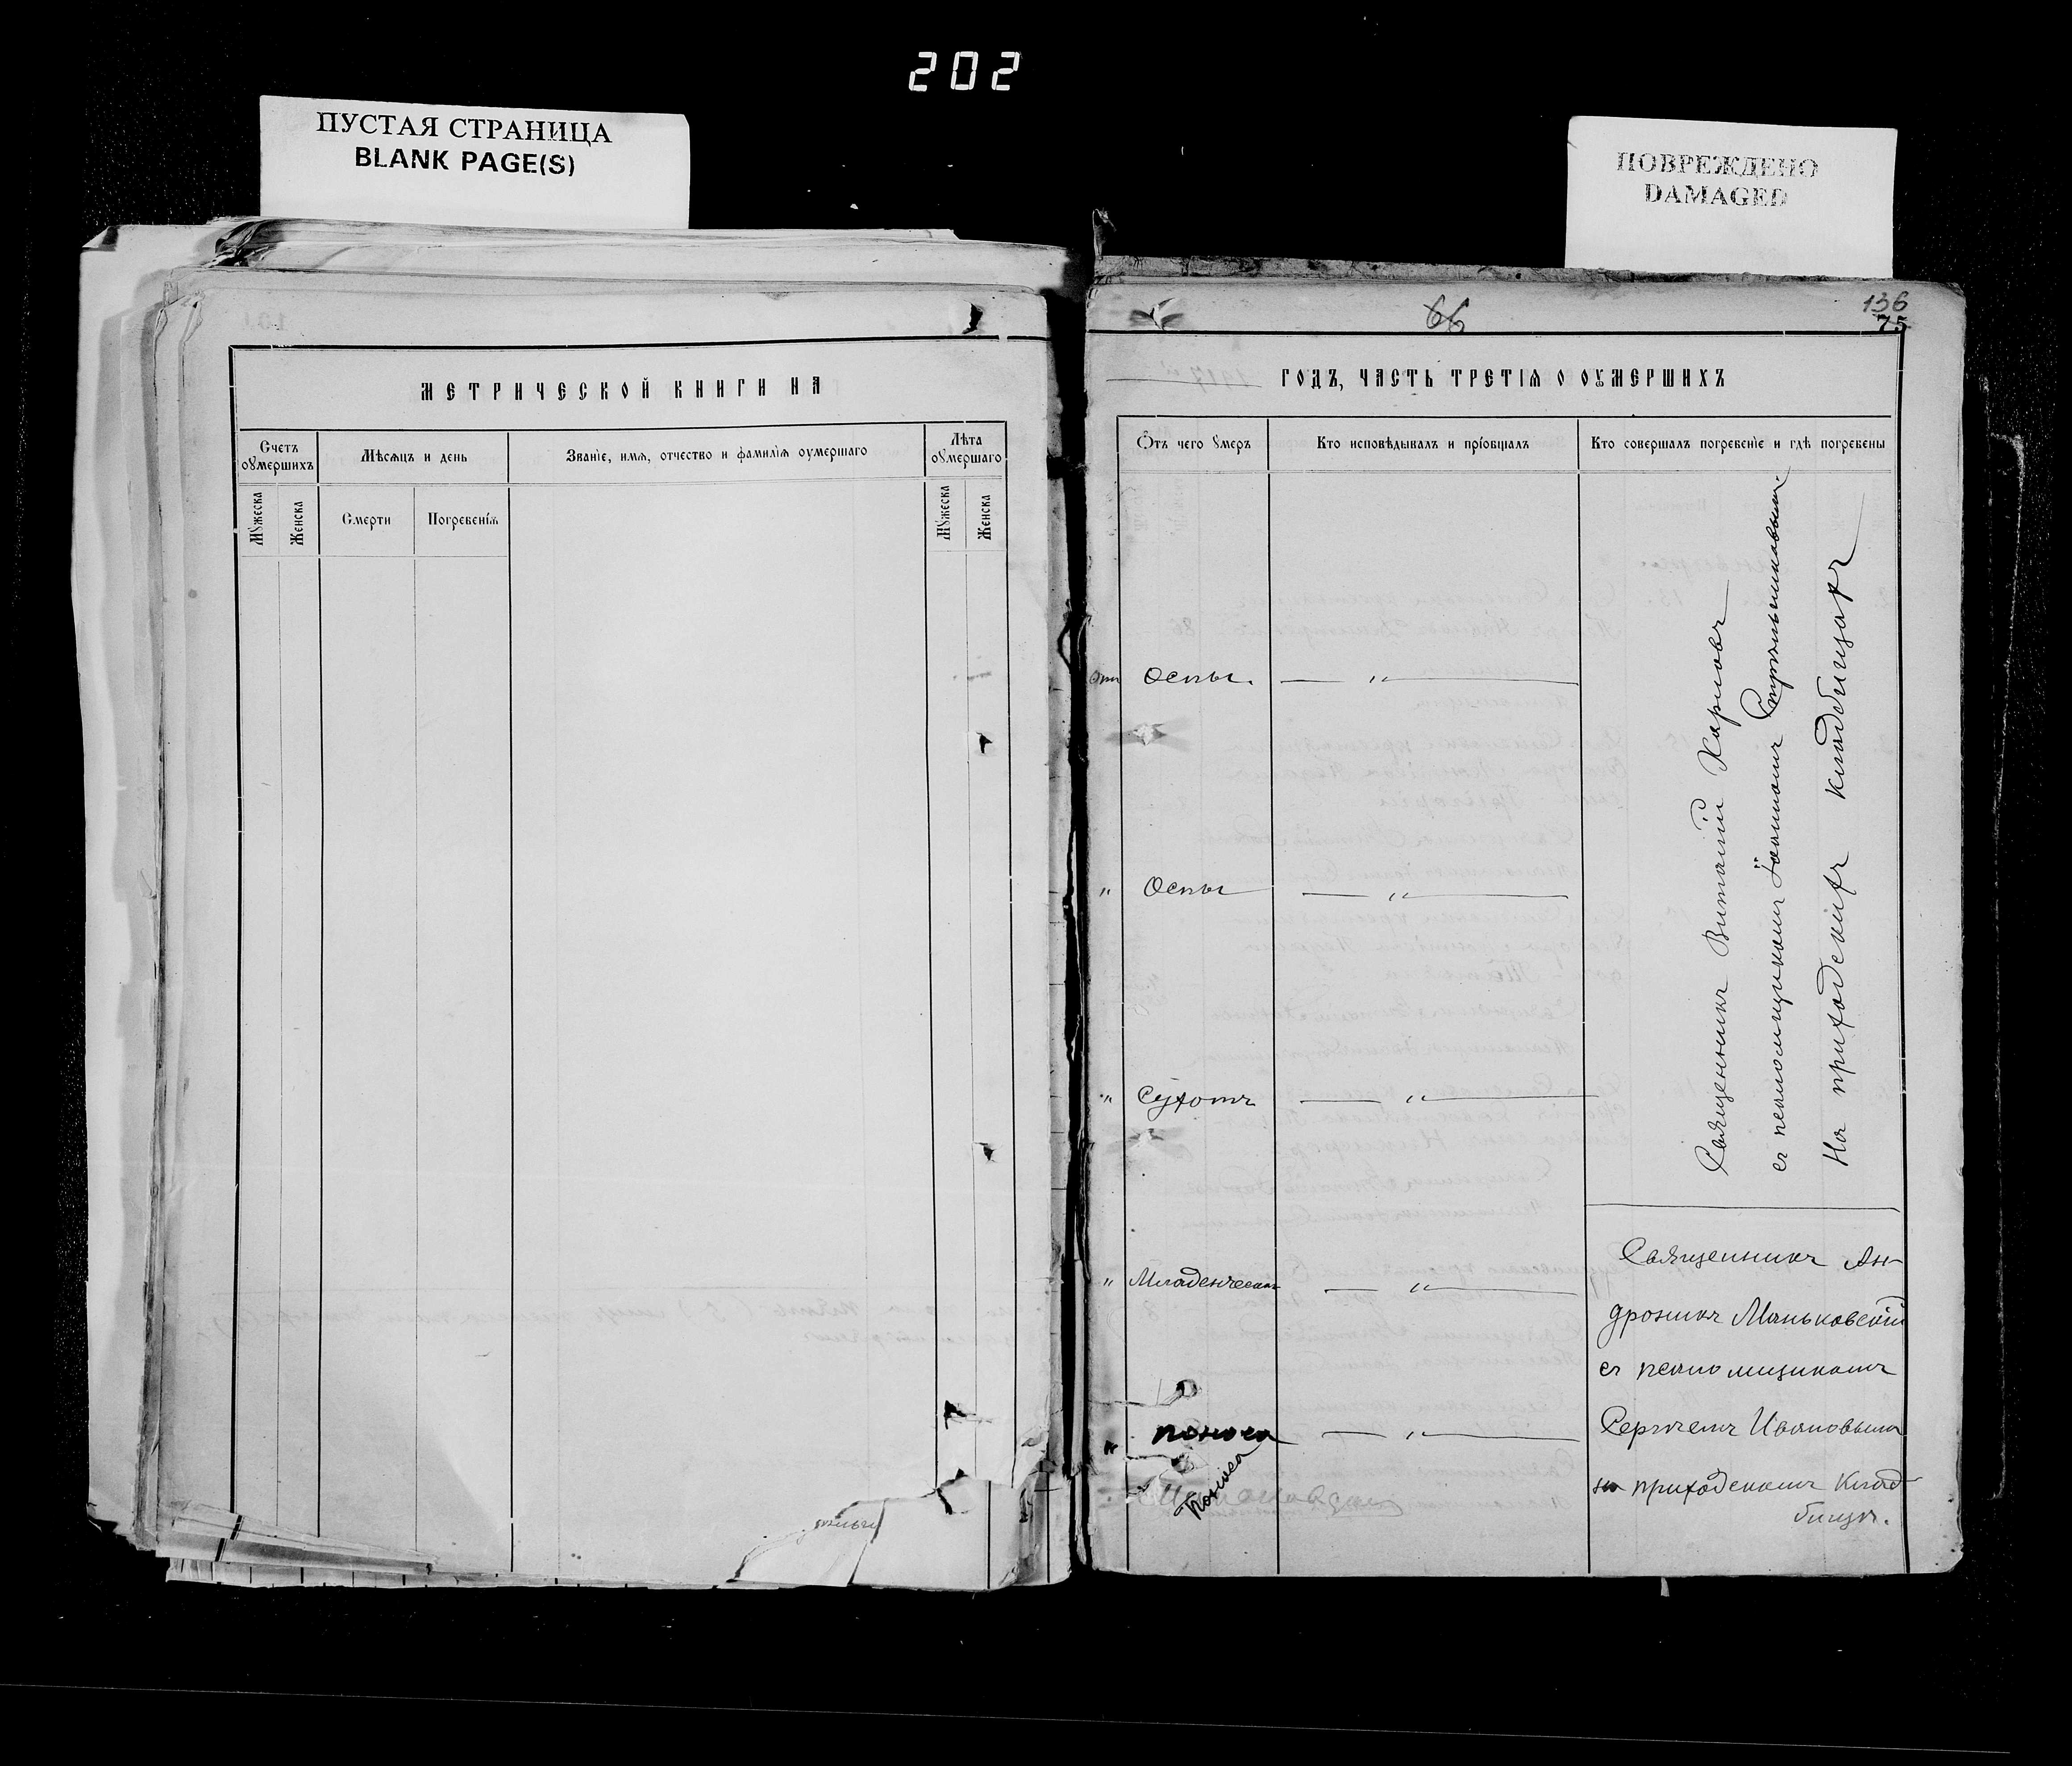 202
ПУСТАЯ СТРАНИЦА
BLANK PAGE(S)
ПОВРЕЖДЕНО
DAMAGED
66
136
75
МЕТРИЧЕСКОЙ КНИГИ НА
Счетъ оумершихъ
Мѣсяцъ и день
Званіе, имя, отчество и фамилія оумершаго
Лѣта оумершаго
Мужеска
Женска
Смерти
Погребенія
Мужеска
Женска
ГОДЪ, ЧАСТЬ ТРЕТІЯ О ОУМЕРШИХЪ
Отъ чего умеръ
Кто исповѣдывалъ и пріобщалъ
Кто совершалъ погребеніе и гдѣ погребены
Отъ Оспы. — „ —
„ Оспы — „ —
„ Сухотъ — „ —
„ Младенческой — „ —
„ поноса — „ —
Поноса
Священникъ Виталій Карповъ
съ псаломщикомъ Іоанномъ Стрѣльниковымъ.
На приходскихъ кладбищахъ
Священникъ Ан-
дроникъ Маньковскій
съ псаломщикомъ
Сергѣемъ Ивановымъ
на приходскомъ клад-
бищѣ.